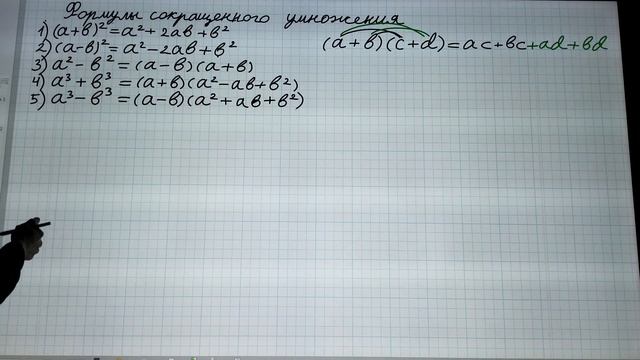 Формулы сокращенного умножения
1) (a+b)² = a² + 2ab + b²
2) (a-b)² = a² - 2ab + b²
3) a² - b² = (a-b)(a+b)
4) a³ + b³ = (a+b)(a² - ab + b²)
5) a³ - b³ = (a-b)(a² + ab + b²)
(a+b)(c+d) = ac + bc + ad + bd